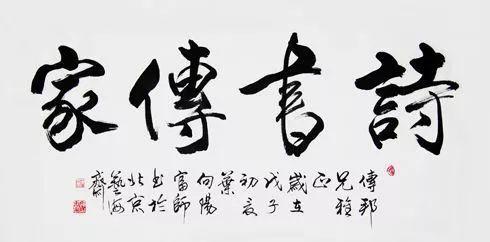 詩書傳家
傳邦
兄雅
正
歲在
戊子
初夏
葉
向陽
富師
书於
北京
藝海
齋